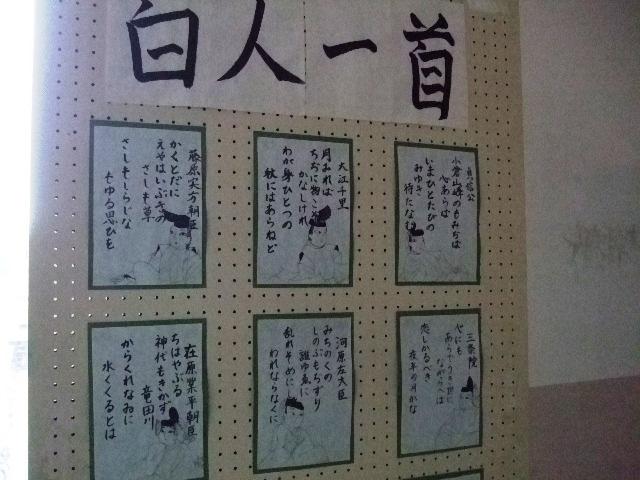 百人一首
貞信公
小倉山峰のもみぢば
心あらば
いまひとたびの
みゆき
待たなむ
大江千里
月みれば
ちぢに物こそ
かなしけれ
わが身ひとつの
秋にはあらねど
藤原実方朝臣
かくとだに
えやはいぶきの
さしも草
さしもしらじな
もゆる思ひを
三条院
心にも
あらでうき世に
ながらへば
恋しかるべき
夜半の月かな
河原左大臣
みちのくの
しのぶもぢずり
誰ゆゑに
乱れそめに
われならなくに
在原業平朝臣
ちはやぶる
神代もきかず
竜田川
からくれなゐに
水くくるとは